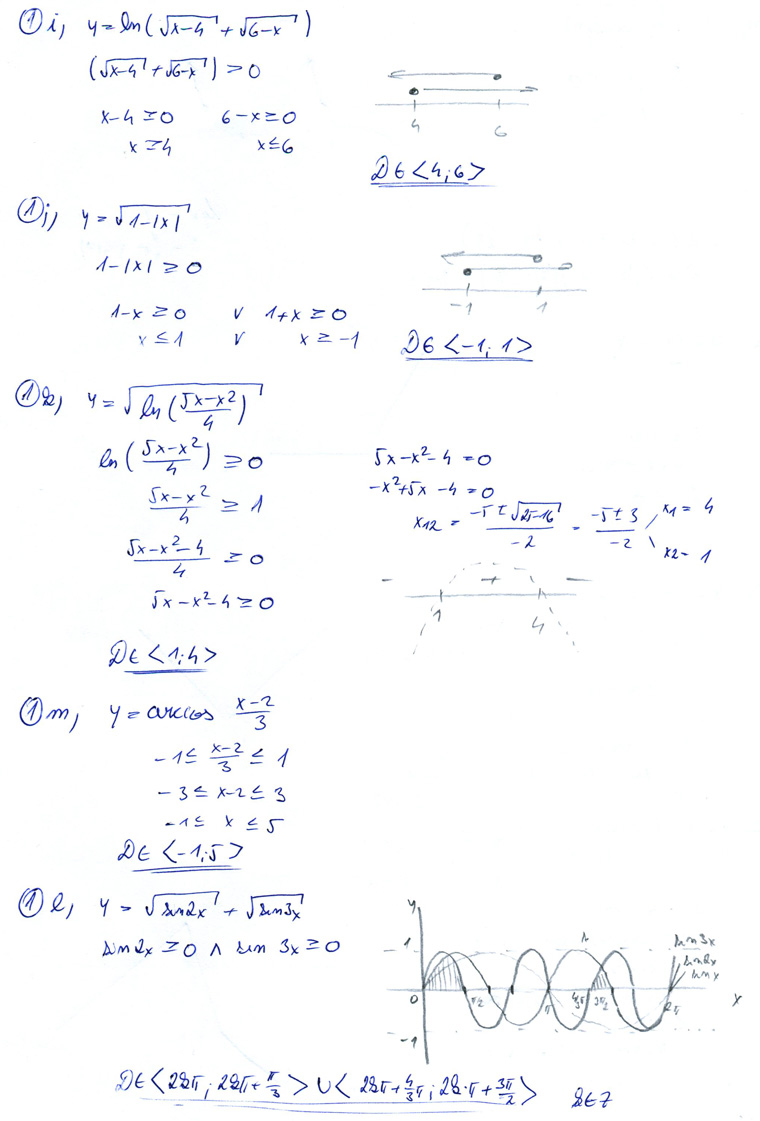 ① i, y = ln(√(x-4) + √(6-x))
(√(x-4) + √(6-x)) > 0
x-4 ≥ 0 6-x ≥ 0
x ≥ 4 x ≤ 6
4 6
D ∈ <4; 6>
① j, y = √(1-|x|)
1-|x| ≥ 0
1-x ≥ 0 v 1+x ≥ 0
x ≤ 1 v x ≥ -1
-1 1
D ∈ <-1; 1>
① k, y = √(ln((5x-x²)/4))
ln((5x-x²)/4) ≥ 0
(5x-x²)/4 ≥ 1
(5x-x²-4)/4 ≥ 0
5x-x²-4 ≥ 0
5x-x²-4 = 0
-x²+5x-4 = 0
x12 = (-5 ± √(25-16))/-2 = (-5 ± 3)/-2 x1 = 4
x2 = 1
- + -
1 4
D ∈ <1; 4>
① m, y = arccos (x-2)/3
-1 ≤ (x-2)/3 ≤ 1
-3 ≤ x-2 ≤ 3
-1 ≤ x ≤ 5
D ∈ <-1; 5>
① l, y = √(sin2x) + √(sin3x)
sin2x ≥ 0 ∧ sin 3x ≥ 0
y
1
sin3x
sin2x
sinx
0 π/2 π 4/3π 3π/2 2π x
-1
D ∈ <2kπ; 2kπ+π/3> ∪ <2kπ+4/3π; 2k·π+3π/2> k∈Z